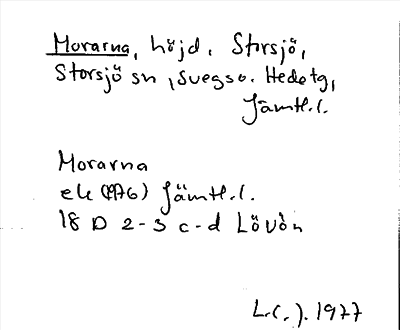 Morarna, höjd, Storsjö,
Storsjö sn, Svegs o. Hede tg,
Jämtl. l.
Morarna
ek (1976) Jämtl. l.
18 D 2-3 c-d Lövön
1977